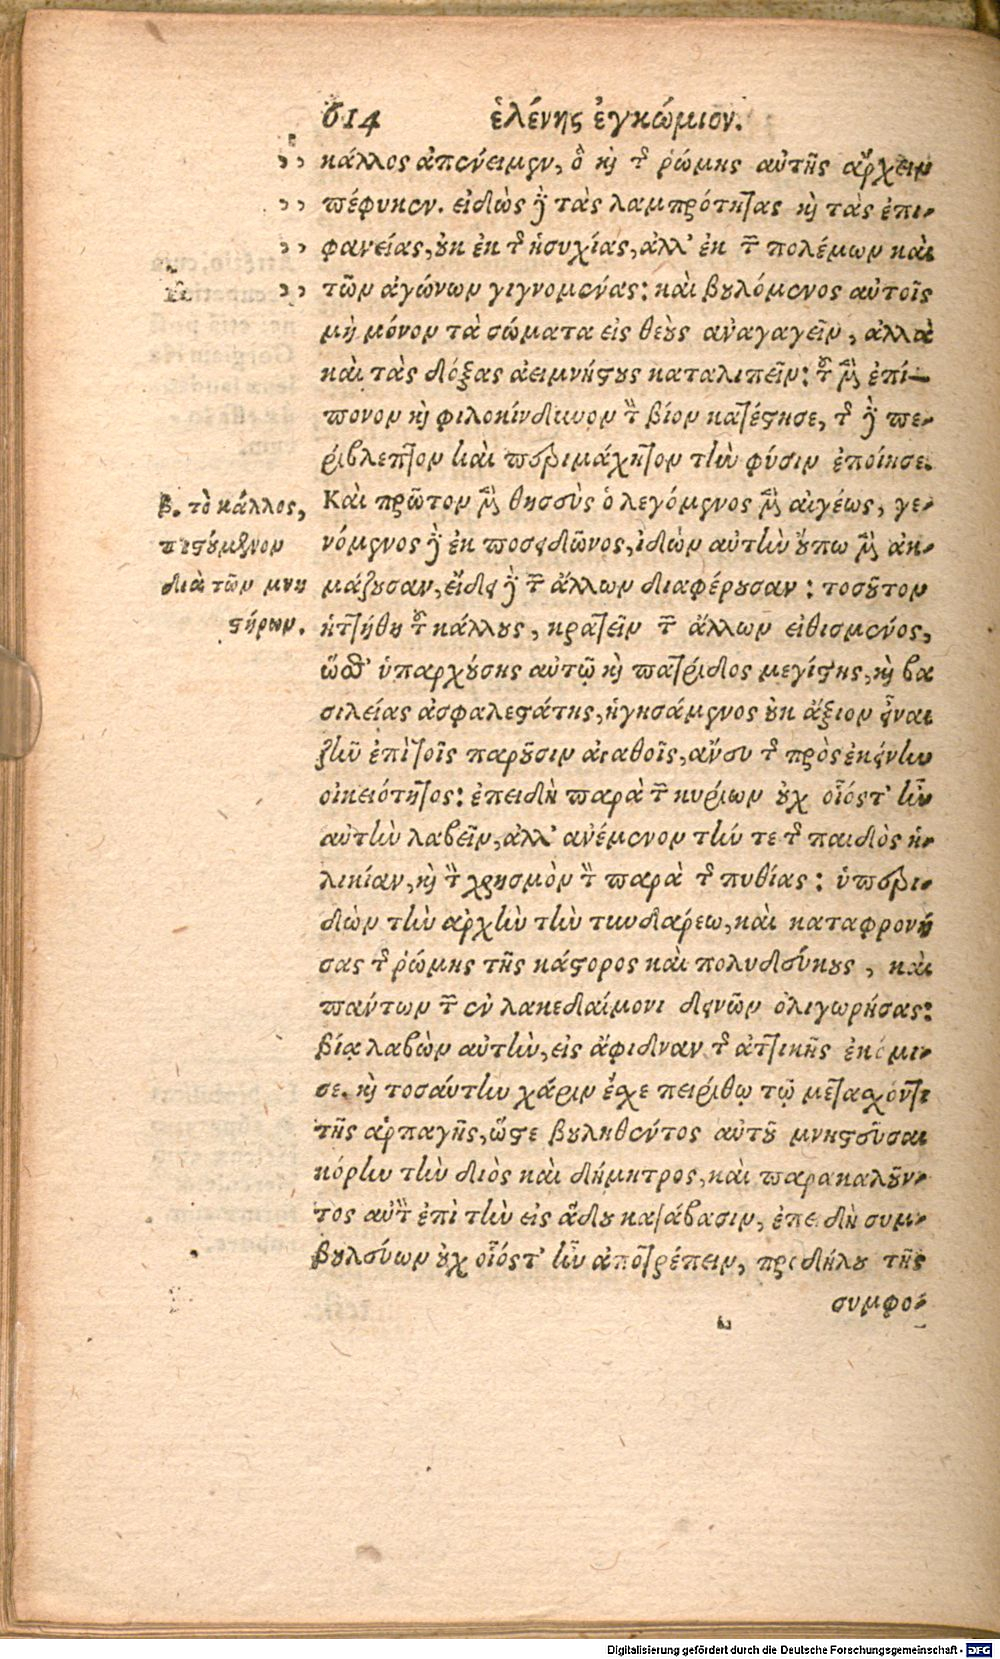 614 ἑλένης ἐγκώμιον.
κάλλος ἀπένειμεν, ὃ καὶ τῆς ῥώμης αὐτῆς ἄρχειν
πέφυκεν. εἰδὼς δὲ τὰς λαμπρότητας καὶ τὰς ἐπι-
φανείας, οὐκ ἐκ τῆς ἡσυχίας, ἀλλ' ἐκ τῶν πολέμων καὶ
τῶν ἀγώνων γιγνομένας: καὶ βουλόμενος αὐτοῖς
μὴ μόνον τὰ σώματα εἰς θεοὺς ἀναγαγεῖν, ἀλλὰ
καὶ τὰς δόξας ἀειμνήστους καταλιπεῖν: τοῦ μὲν ἐπί-
πονον καὶ φιλοκίνδυνον τὸν βίον κατέστησε, τῆς δὲ πε-
ρίβλεπτον καὶ περιμάχητον τὴν φύσιν ἐποίησε.
Καὶ πρῶτον μὲν θησεὺς ὁ λεγόμενος μὲν αἰγέως, γε-
νόμενος δὲ ἐκ ποσειδῶνος, ἰδὼν αὐτὴν οὔπω μὲν ἀκ-
μάζουσαν, εἶδε δὲ τῶν ἄλλων διαφέρουσαν: τοσοῦτον
ἡττήθη τοῦ κάλλους, κρατεῖν τῶν ἄλλων εἰθισμένος,
ὥσθ' ὑπαρχούσης αὐτῷ καὶ πατρίδος μεγίστης, καὶ βα
σιλείας ἀσφαλεστάτης, ἡγησάμενος οὐκ ἄξιον εἶναι
ζῆν ἐπὶ τοῖς παροῦσιν ἀγαθοῖς, ἄνευ τῆς πρὸς ἐκείνην
οἰκειότητος: ἐπειδὴ παρὰ τῶν κυρίων οὐχ οἷός τ' ἦν
αὐτὴν λαβεῖν, ἀλλ' ἀνέμενον τήν τε τῆς παιδὸς ἡ-
λικίαν, καὶ τὸν χρησμὸν τὸν παρὰ τῆς πυθίας: ὑπερι-
δὼν τὴν ἀρχὴν τὴν τυνδάρεω, καὶ καταφρονή
σας τῆς ῥώμης τῆς κάστορος καὶ πολυδεύκους, καὶ
πάντων τῶν ἐν λακεδαίμονι δεινῶν ὀλιγωρήσας:
βίᾳ λαβὼν αὐτὴν, εἰς ἄφιδναν τῆς ἀττικῆς ἐκόμι-
σε. καὶ τοσαύτην χάριν ἔσχε πειρίθῳ τῷ μετασχόντι
τῆς ἁρπαγῆς, ὥστε βουληθέντος αὐτοῦ μνηστεῦσαι
κόρην τὴν διὸς καὶ δήμητρος, καὶ παρακαλοῦν-
τος αὐτὸν ἐπὶ τὴν εἰς ᾅδου κατάβασιν, ἐπειδὴ συμ-
βουλεύων οὐχ οἷός τ' ἦν ἀποτρέπειν, προδήλου τῆς
συμφο-
β. τὸ κάλλος,
πιστούμενον
διὰ τῶν μνη
στήρων.
Digitalisierung gefördert durch die Deutsche Forschungsgemeinschaft - DFG